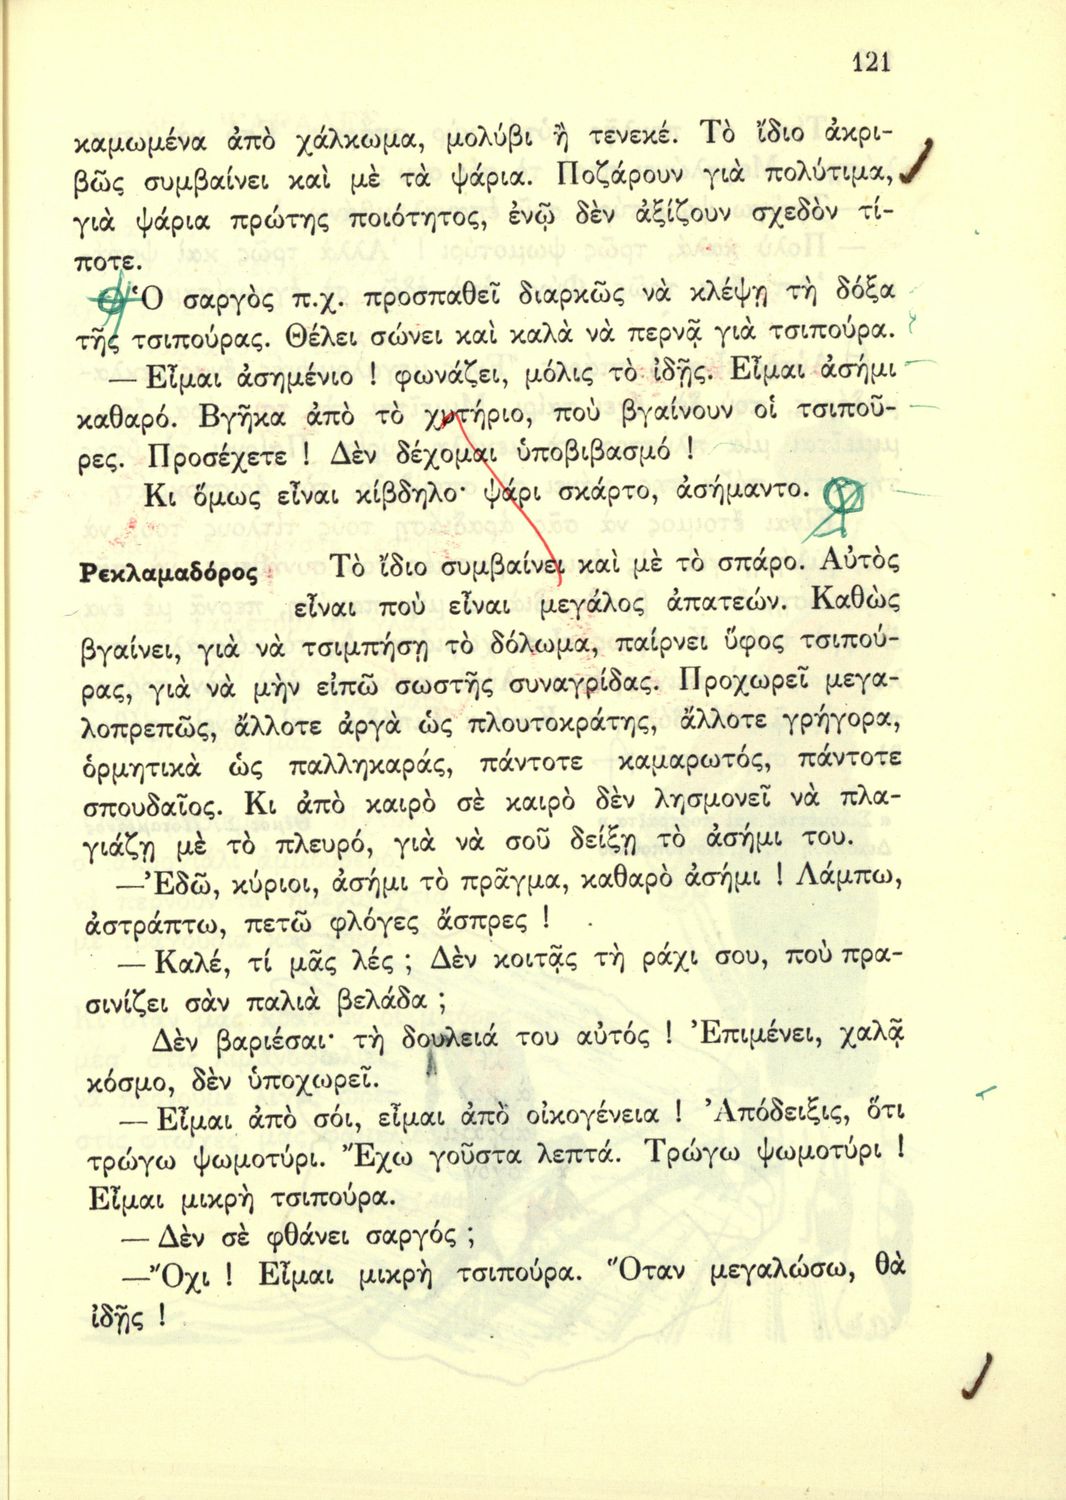 121
καμωμένα ἀπὸ χάλκωμα, μολύβι ἢ τενεκέ. Τὸ ἴδιο ἀκρι-
βῶς συμβαίνει καὶ μὲ τὰ ψάρια. Ποζάρουν γιὰ πολύτιμα,
γιὰ ψάρια πρώτης ποιότητος, ἐνῷ δὲν ἀξίζουν σχεδὸν τί-
ποτε.
Ὁ σαργὸς π.χ. προσπαθεῖ διαρκῶς νὰ κλέψῃ τὴ δόξα
τῆς τσιπούρας. Θέλει σώνει καὶ καλὰ νὰ περνᾷ γιὰ τσιπούρα.
— Εἶμαι ἀσημένιο ! φωνάζει, μόλις τὸ ἰδῇς. Εἶμαι ἀσήμι
καθαρό. Βγῆκα ἀπὸ τὸ χυτήριο, ποὺ βγαίνουν οἱ τσιποῦ-
ρες. Προσέχετε ! Δὲν δέχομαι ὑποβιβασμό !
Κι ὅμως εἶναι κίβδηλο· ψάρι σκάρτο, ἀσήμαντο.
Ρεκλαμαδόρος Τὸ ἴδιο συμβαίνει καὶ μὲ τὸ σπάρο. Αὐτὸς
εἶναι ποὺ εἶναι μεγάλος ἀπατεών. Καθὼς
βγαίνει, γιὰ νὰ τσιμπήσῃ τὸ δόλωμα, παίρνει ὕφος τσιπού-
ρας, γιὰ νὰ μὴν εἰπῶ σωστῆς συναγρίδας. Προχωρεῖ μεγα-
λοπρεπῶς, ἄλλοτε ἀργὰ ὡς πλουτοκράτης, ἄλλοτε γρήγορα,
ὁρμητικὰ ὡς παλληκαράς, πάντοτε καμαρωτός, πάντοτε
σπουδαῖος. Κι ἀπὸ καιρὸ σὲ καιρὸ δὲν λησμονεῖ νὰ πλα-
γιάζῃ μὲ τὸ πλευρό, γιὰ νὰ σοῦ δείξῃ τὸ ἀσήμι του.
—Ἐδῶ, κύριοι, ἀσήμι τὸ πρᾶγμα, καθαρὸ ἀσήμι ! Λάμπω,
ἀστράπτω, πετῶ φλόγες ἄσπρες !
— Καλέ, τί μᾶς λές ; Δὲν κοιτᾷς τὴ ράχι σου, ποὺ πρα-
σινίζει σὰν παλιὰ βελάδα ;
Δὲν βαριέσαι· τὴ δουλειά του αὐτός ! Ἐπιμένει, χαλᾷ
κόσμο, δὲν ὑποχωρεῖ.
— Εἶμαι ἀπὸ σόι, εἶμαι ἀπὸ οἰκογένεια ! Ἀπόδειξις, ὅτι
τρώγω ψωμοτύρι. Ἔχω γοῦστα λεπτά. Τρώγω ψωμοτύρι !
Εἶμαι μικρὴ τσιπούρα.
— Δὲν σὲ φθάνει σαργός ;
—Ὄχι ! Εἶμαι μικρὴ τσιπούρα. Ὅταν μεγαλώσω, θὰ
ἰδῇς !